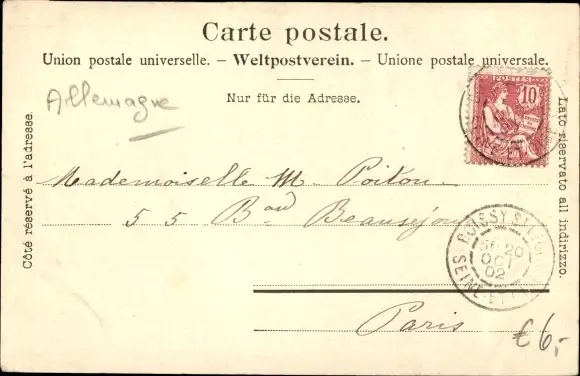 Carte postale.
Union postale universelle. – Weltpostverein. – Unione postale universale.
Nur für die Adresse.
Allemagne
Côté réservé à l'adresse.
Lato riservato all indirizzo.
POSTES
10
Mademoiselle M. Poitou
55 Bard Beauséjour
Paris
POISSY
20
OCT
02
SEINE-ET-
€6,-